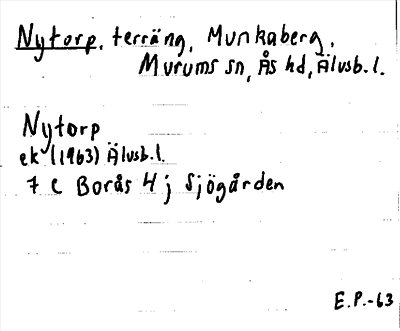 Nytorp, terräng, Munkaberg,
Murums sn, Ås hd, Älvsb. l.
Nytorp
ek (1963) Älvsb. l.
7 C Borås 4 j Sjögården
E.P.-63